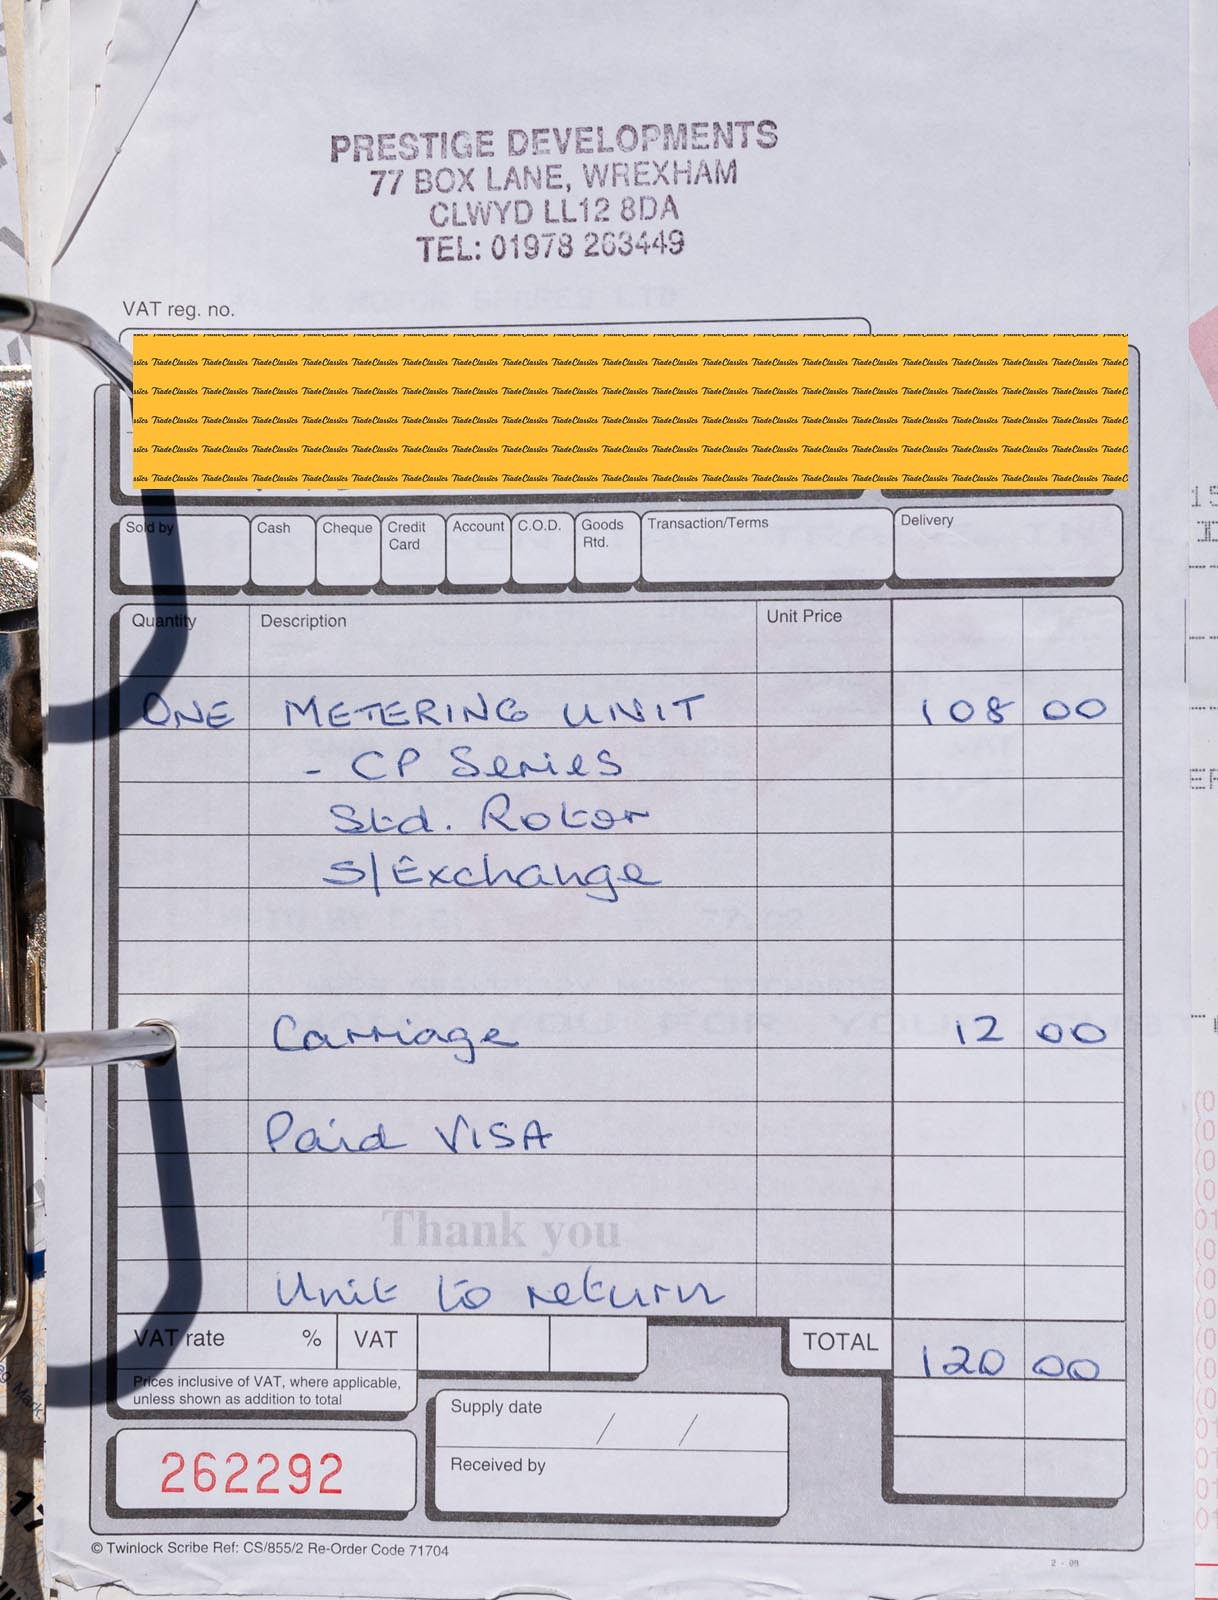 PRESTIGE DEVELOPMENTS
77 BOX LANE, WREXHAM
CLWYD LL12 8DA
TEL: 01978 263449
VAT reg. no.
TradeClassics
Sold by Cash Cheque Credit Card Account C.O.D. Goods Rtd. Transaction/Terms Delivery
Quantity Description Unit Price
ONE METERING UNIT 108 00
- CP Series
Std. Rotor
S/Exchange
Carriage 12 00
Paid VISA
Thank you
Unit to return
VAT rate % VAT TOTAL 120 00
Prices inclusive of VAT, where applicable,
unless shown as addition to total
Supply date / /
Received by
262292
© Twinlock Scribe Ref: CS/855/2 Re-Order Code 71704
2 - 98